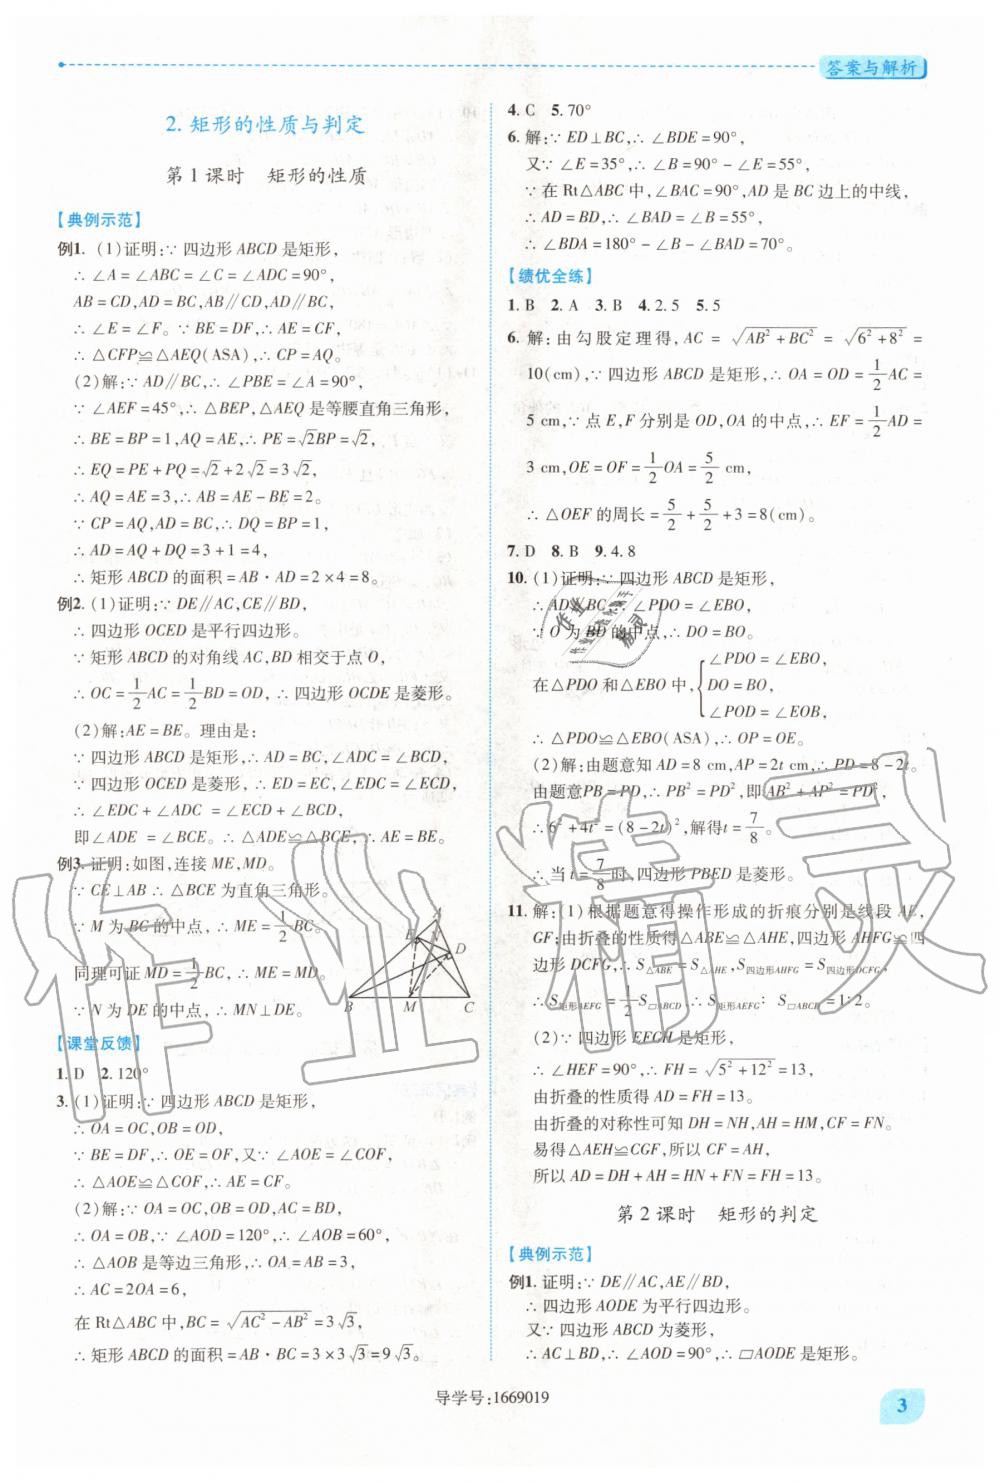 答案与解析
2. 矩形的性质与判定
第1课时 矩形的性质
【典例示范】
例1. (1)证明:∵四边形ABCD是矩形,
∴∠A=∠ABC=∠C=∠ADC=90°,
AB=CD,AD=BC,AB∥CD,AD∥BC,
∴∠E=∠F。∵BE=DF,∴AE=CF,
∴△CFP≌△AEQ(ASA),∴CP=AQ。
(2)解:∵AD∥BC,∴∠PBE=∠A=90°,
∵∠AEF=45°,∴△BEP,△AEQ是等腰直角三角形,
∴BE=BP=1,AQ=AE,∴PE=√2BP=√2,
∴EQ=PE+PQ=√2+2√2=3√2,
∴AQ=AE=3,∴AB=AE-BE=2。
∵CP=AQ,AD=BC,∴DQ=BP=1,
∴AD=AQ+DQ=3+1=4,
∴矩形ABCD的面积=AB·AD=2×4=8。
例2. (1)证明:∵DE∥AC,CE∥BD,
∴四边形OCED是平行四边形。
∵矩形ABCD的对角线AC,BD相交于点O,
∴OC=1/2AC=1/2BD=OD,∴四边形OCDE是菱形。
(2)解:AE=BE。理由是:
∵四边形ABCD是矩形,∴AD=BC,∠ADC=∠BCD,
∵四边形OCED是菱形,∴ED=EC,∠EDC=∠ECD,
∴∠EDC+∠ADC=∠ECD+∠BCD,
即∠ADE=∠BCE。∴△ADE≌△BCE,∴AE=BE。
例3. 证明:如图,连接ME,MD。
∵CE⊥AB∴△BCE为直角三角形。
∵M为BC的中点,∴ME=1/2BC。
同理可证MD=1/2BC,∴ME=MD。
∵N为DE的中点,∴MN⊥DE。
A
E
N
D
B
M
C
【课堂反馈】
1. D 2. 120°
3. (1)证明:∵四边形ABCD是矩形,
∴OA=OC,OB=OD,
∵BE=DF,∴OE=OF,又∵∠AOE=∠COF,
∴△AOE≌△COF,∴AE=CF。
(2)解:∵OA=OC,OB=OD,AC=BD,
∴OA=OB,∵∠AOD=120°,∴∠AOB=60°,
∴△AOB是等边三角形,∴OA=AB=3,
∴AC=2OA=6,
在Rt△ABC中,BC=√(AC²-AB²)=3√3,
∴矩形ABCD的面积=AB·BC=3×3√3=9√3。
4. C 5. 70°
6. 解:∵ED⊥BC,∴∠BDE=90°,
又∵∠E=35°,∴∠B=90°-∠E=55°,
∵在Rt△ABC中,∠BAC=90°,AD是BC边上的中线,
∴AD=BD,∴∠BAD=∠B=55°,
∴∠BDA=180°-∠B-∠BAD=70°。
【绩优全练】
1. B 2. A 3. B 4. 2.5 5. 5
6. 解:由勾股定理得,AC=√(AB²+BC²)=√(6²+8²)=
10(cm),∵四边形ABCD是矩形,∴OA=OD=1/2AC=
5 cm,∵点E,F分别是OD,OA的中点,∴EF=1/2AD=
3 cm,OE=OF=1/2OA=5/2 cm,
∴△OEF的周长=5/2+5/2+3=8(cm)。
7. D 8. B 9. 4.8
10. (1)证明:∵四边形ABCD是矩形,
∴AD∥BC,∴∠PDO=∠EBO,
∵O为BD的中点,∴DO=BO。
在△PDO和△EBO中,{∠PDO=∠EBO,
DO=BO,
∠POD=∠EOB,
∴△PDO≌△EBO(ASA),∴OP=OE。
(2)解:由题意知AD=8 cm,AP=2t cm,∴PD=8-2t。
由题意PB=PD,∴PB²=PD²,即AB²+AP²=PD²,
∴6²+4t²=(8-2t)²,解得t=7/8。
∴当t=7/8时,四边形PBED是菱形。
11. 解:(1)根据题意得操作形成的折痕分别是线段AE,
GF;由折叠的性质得△ABE≌△AHE,四边形AHFG≌四
边形DCFG,∴S△ABE=S△AHE,S四边形AHFG=S四边形DCFG,
∴S矩形AEFG=1/2S□ABCD,∴S矩形AEFG∶S□ABCD=1∶2。
(2)∵四边形EFGH是矩形,
∴∠HEF=90°,∴FH=√(5²+12²)=13,
由折叠的性质得AD=FH=13。
由折叠的对称性可知DH=NH,AH=HM,CF=FN。
易得△AEH≌CGF,所以CF=AH,
所以AD=DH+AH=HN+FN=FH=13。
第2课时 矩形的判定
【典例示范】
例1. 证明:∵DE∥AC,AE∥BD,
∴四边形AODE为平行四边形。
又∵四边形ABCD为菱形,
∴AC⊥BD,∴∠AOD=90°,∴□AODE是矩形。
导学号:1669019
3
作业精灵